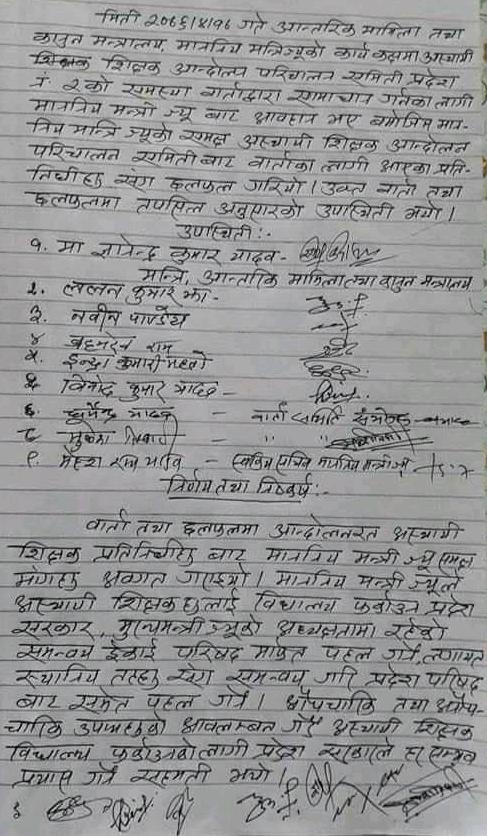 मिती २०७५।४।१६ गते आन्तरिक मामिला तथा
कानुन मन्त्रालय, माननिय मन्त्रिज्यूको कार्य कक्षमा अस्थायी
शिक्षक आन्दोलन परिचालन समिती प्रदेश
नं. २ को समस्या वार्ताद्वारा समाधान गर्नका लागी
माननिय मन्त्री ज्यू बाट आवहान भए बमोजिम मान-
निय मन्त्रि ज्यूको समक्ष अस्थायी शिक्षक आन्दोलन
परिचालन समिती बाट वार्ताका लागी आएका प्रति-
निधीहरु संग छलफल गरियो । उक्त वार्ता तथा
छलफलमा तपसिल अनुसारको उपस्थिती भयो ।
उपस्थिती:-
१. मा ज्ञानेन्द्र कुमार यादव -
मन्त्रि, आन्तरिक मामिला तथा कानुन मन्त्रालय
२. ललन कुमार झा -
३. नवीन पाण्डेय
४ राम
५. इन्द्रा कुमारी महतो
६ विनोद कुमार यादव -
यादव - वार्ता समिति संयोजक
८ मुकेश - " "
९. महेश - मन्त्री
निर्णय तथा निष्कर्ष:-
वार्ता तथा छलफलमा आन्दोलनरत अस्थायी
शिक्षक प्रतिनिधीहरु बाट माननिय मन्त्री ज्यू समक्ष
मागहरु अवगत गराइयो । माननिय मन्त्री ज्यूले
अस्थायी शिक्षकहरुलाई विद्यालय फर्काउन प्रदेश
सरकार, मुख्यमन्त्री ज्यूको अध्यक्षतामा रहेको
समन्वय ईकाई परिषद मार्फत पहल गर्ने, लगायत
स्थानिय तहहरु संग समन्वय गरि प्रदेश परिषद
बाट समेत पहल गर्ने । औपचारिक तथा अनौप-
चारिक उपायहरुको अवलम्बन गरि अस्थायी शिक्षक
विद्यालय फर्काउनको लागी प्रदेश सरकारले हर सम्भव
प्रयास गर्ने सहमती भयो ।